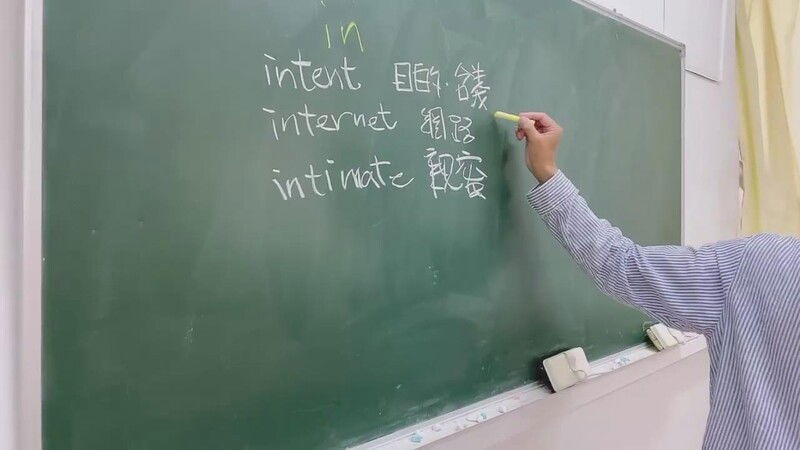 in
intent 目的.含義
internet 網路
intimate 親密